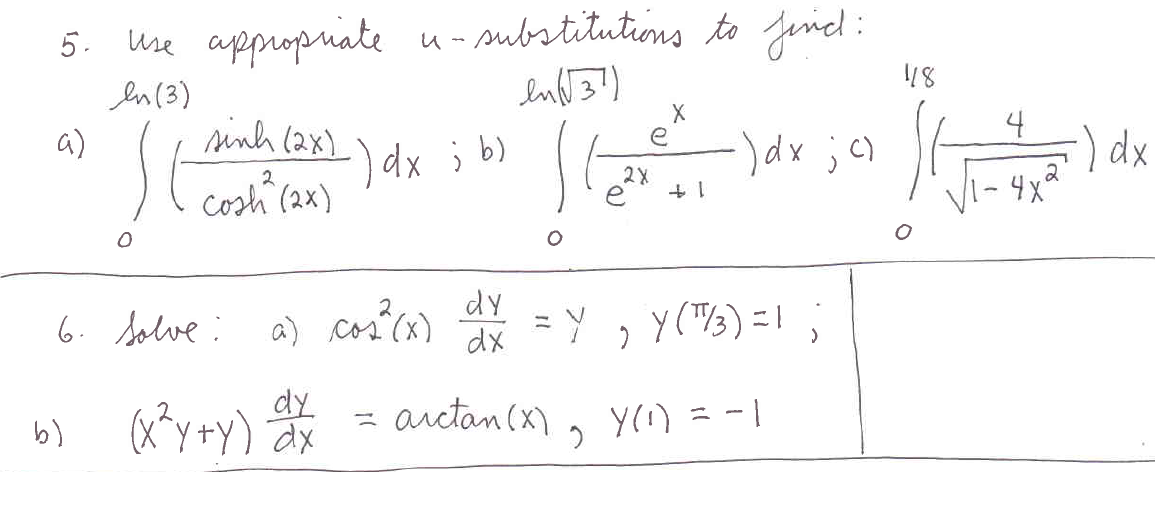 5. Use appropriate u-substitutions to find:
a) ∫₀^{ln(3)} (sinh(2x) / cosh²(2x)) dx ; b) ∫₀^{ln(√3)} (eˣ / (e²ˣ + 1)) dx ; c) ∫₀^{1/8} (4 / √(1 - 4x²)) dx
6. Solve: a) cos²(x) dy/dx = y , y(π/3) = 1 ;
b) (x²y + y) dy/dx = arctan(x) , y(1) = -1